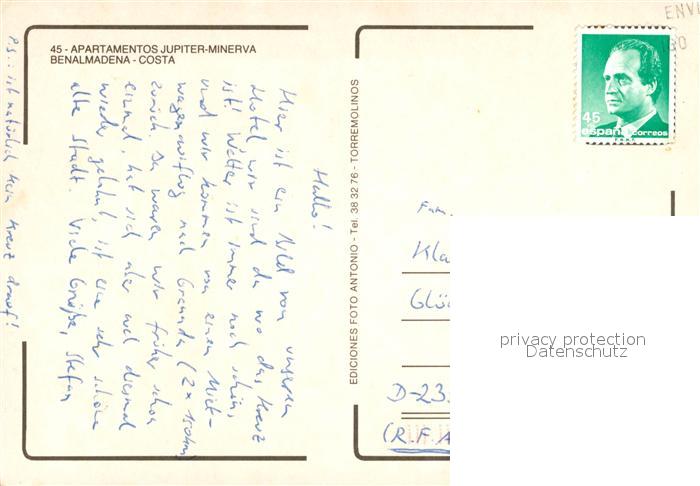 45 - APARTAMENTOS JUPITER-MINERVA
BENALMADENA - COSTA
Hallo!
Hier ist ein Bild von unserem
Hotel wir sind da wo das Kreuz
ist! Wetter ist immer noch schön,
und wir kommen von einem Miet-
wagenausflug nach Granada (2 x 150km)
zurück. Da waren wir früher schon
einmal, hat sich aber auch diesmal
wieder gelohnt, ist eine sehr schöne
alte Stadt. Viele Grüße, Stefan
P.S.: ist natürlich kein Kreuz drauf!
EDICIONES FOTO ANTONIO - Tel. 38 32 76 - TORREMOLINOS
45
españa correos
ENVI
Fam.
Kla
Glü
D-23
(R.F.A
privacy protection
Datenschutz